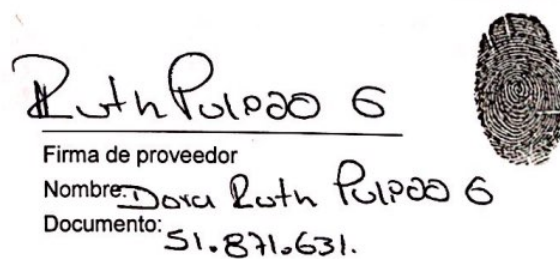 Ruth Pulido G
Firma de proveedor
Nombre: Dora Ruth Pulido G
Documento: 51.871.631.